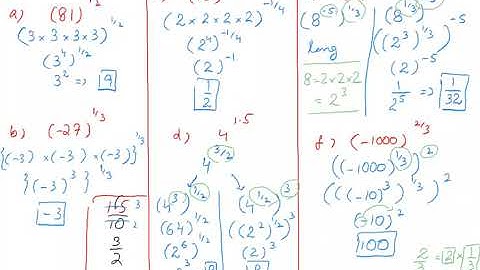 a) (81)^1/2
(3 × 3 × 3 × 3)^1/2
(3^4)^1/2
3^2 => 9
b) (-27)^1/3
{(-3) × (-3) × (-3)}^1/3
{(-3)^3}^1/3
-3
15 3
10 2
3
2
(2 × 2 × 2 × 2)^-1/4
(2^4)^-1/4
(2)^-1
1
2
d) 4^1.5
4^3/2
(4^3)^1/2
(64)^1/2
(2^6)^1/2
(4^1/2)^3
((2^2)^1/2)^3
(2)^3
(8^-5)^1/3
8=2×2×2
=2^3
(8^1/3)^-5
((2^3)^1/3)^-5
(2)^-5
1/2^5 => 1/32
f) (-1000)^2/3
((-1000)^1/3)^2
(((-10)^3)^1/3)^2
(-10)^2
100
2/3 = 2 × 1/3